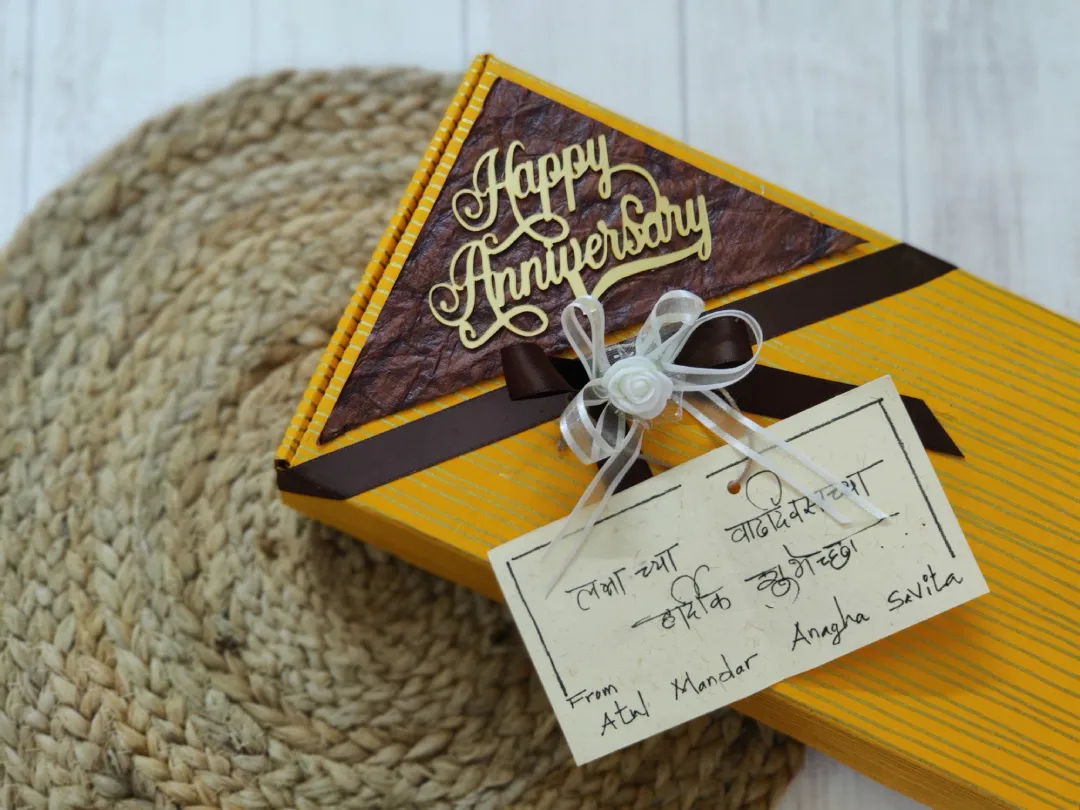 Happy
Anniversary
लग्नाच्या वाढदिवसाच्या
हार्दिक शुभेच्छा...
From
Atul Mandar Anagha Savita